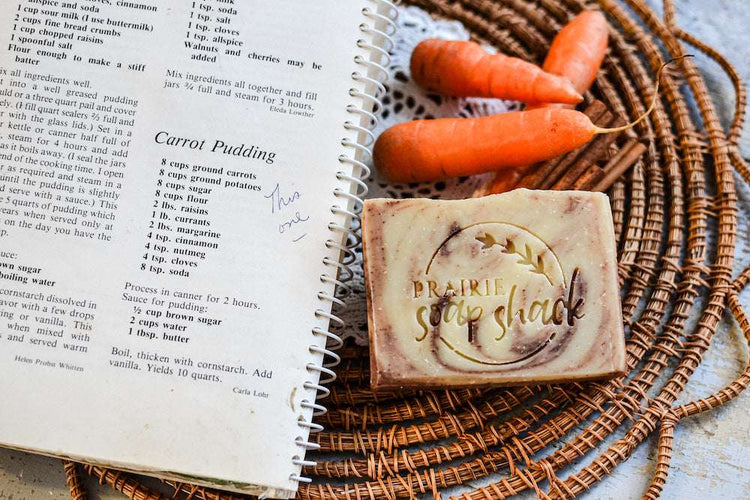 spice and soda
1 cup sour milk (I use buttermilk)
2 cups fine bread crumbs
1 cup chopped raisins
1 spoonful salt
Flour enough to make a stiff
batter
all ingredients well.
into a well greased pudding
or a three quart pail and cover
(I fill quart sealers ¾ full and
with the glass lids.) Set in a
kettle or canner half full of
steam for 4 hours and add
as it boils away. (I seal the jars
end of the cooking time. I open
as required and steam in a
until the pudding is slightly
serve with a sauce.) This
5 quarts of pudding which
years when served only at
on the day you have the
brown sugar
boiling water
cornstarch dissolved in
with a few drops
or vanilla. This
when mixed with
and served warm
Helen Probin Whitten
1 tsp. soda
1 tsp. salt
1 tsp. cloves
1 tsp. allspice
Walnuts and cherries may be
added
Mix ingredients all together and fill
jars ¾ full and steam for 3 hours.
Eleda Lowther
Carrot Pudding
8 cups ground carrots
8 cups ground potatoes
8 cups sugar
8 cups flour
2 lbs. raisins
1 lb. currants
2 lbs. margarine
4 tsp. cinnamon
4 tsp. nutmeg
4 tsp. cloves
8 tsp. soda
This
one
Process in canner for 2 hours.
Sauce for pudding:
½ cup brown sugar
2 cups water
1 tbsp. butter
Boil, thicken with cornstarch. Add
vanilla. Yields 10 quarts.
Carla Lohr
PRAIRIE
soap shack